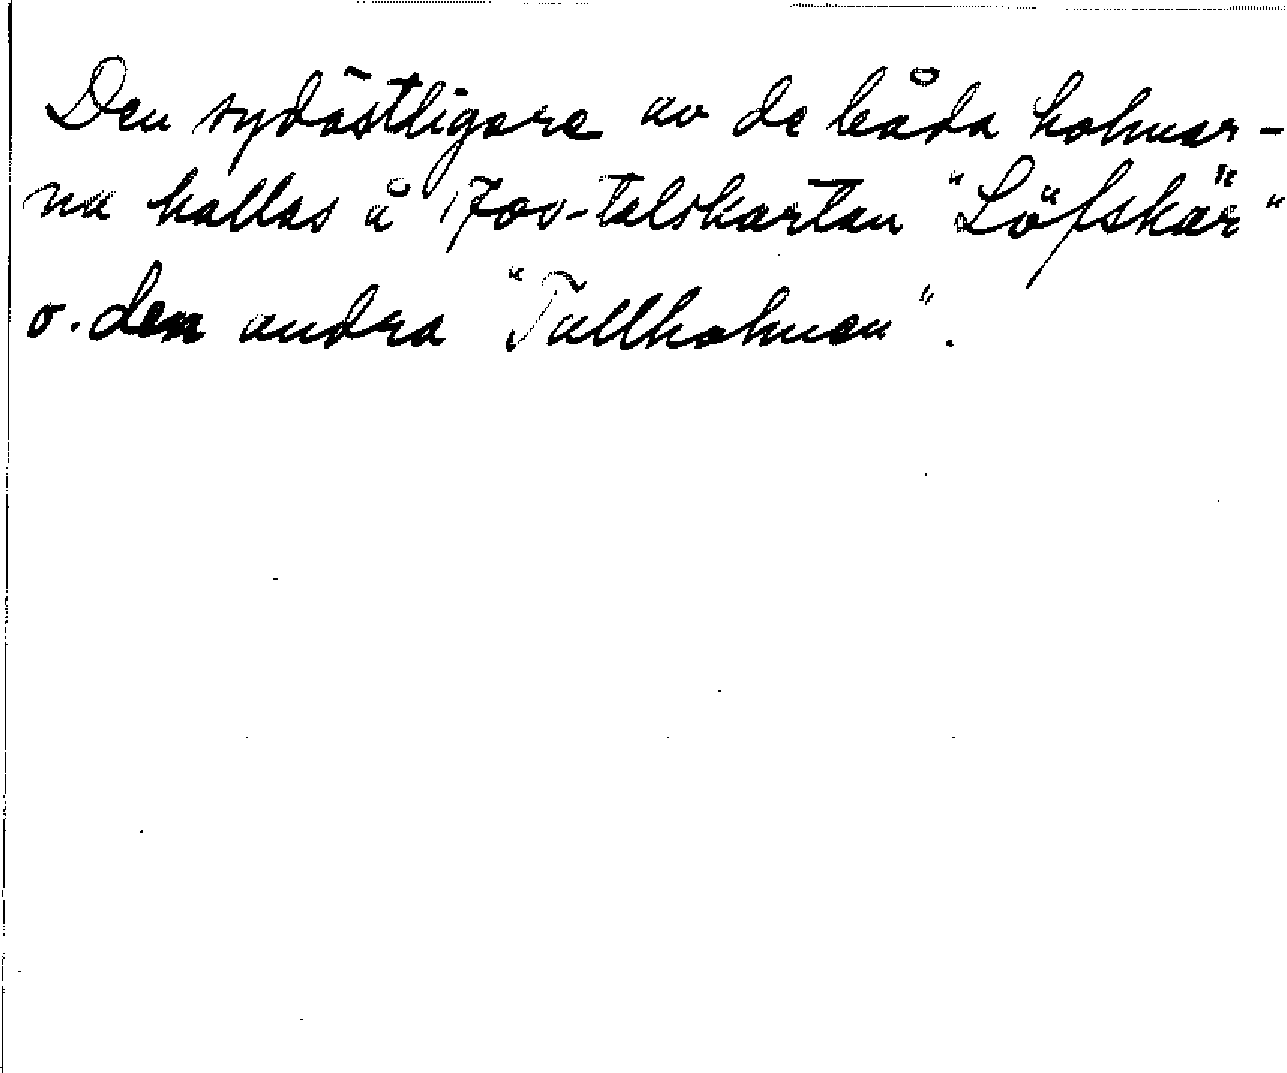 Den sydöstligare av de båda holmar-
na kallas å 1700-talskartan "Löfskär"
o. den andra "Tallholmen".